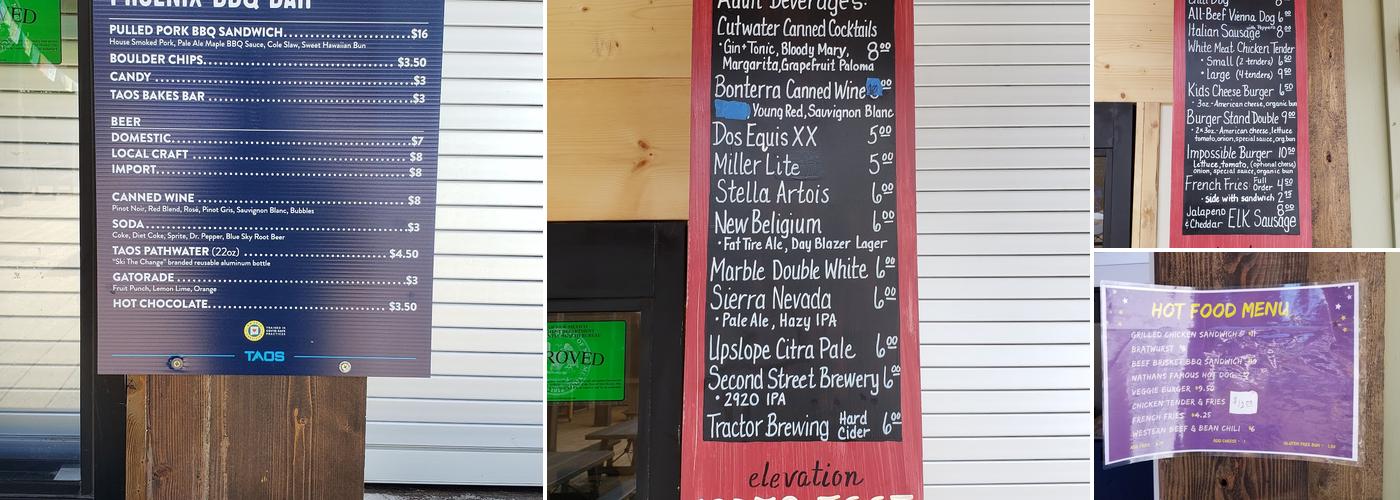 PHOENIX BBQ BAR
PULLED PORK BBQ SANDWICH $16
House Smoked Pork, Pale Ale Maple BBQ Sauce, Cole Slaw, Sweet Hawaiian Bun
BOULDER CHIPS $3.50
CANDY $3
TAOS BAKES BAR $3
BEER
DOMESTIC $7
LOCAL CRAFT $8
IMPORT $8
CANNED WINE $8
Pinot Noir, Red Blend, Rosé, Pinot Gris, Sauvignon Blanc, Bubbles
SODA $3
Coke, Diet Coke, Sprite, Dr. Pepper, Blue Sky Root Beer
TAOS PATHWATER (22oz) $4.50
"Ski The Change" branded reusable aluminum bottle
GATORADE $3
Fruit Punch, Lemon Lime, Orange
HOT CHOCOLATE $3.50
TAOS
Adult Beverages:
Cutwater Canned Cocktails
• Gin+Tonic, Bloody Mary, 8.00
Margarita, Grapefruit Paloma
Bonterra Canned Wine
, Young Red, Sauvignon Blanc
Dos Equis XX 5.00
Miller Lite 5.00
Stella Artois 6.00
New Beligium 6.00
• Fat Tire Ale, Day Blazer Lager
Marble Double White 6.00
Sierra Nevada 6.00
• Pale Ale, Hazy IPA
Upslope Citra Pale 6.00
Second Street Brewery 6.00
• 2920 IPA
Tractor Brewing Hard Cider 6.00
elevation
ROVED
All-Beef Vienna Dog 6.00
Italian Sausage with Peppers 8
White Meat Chicken Tender
• Small (2 tenders) 6.50
• Large (4 tenders) 9.50
Kids Cheese Burger 6.50
• 3oz - American cheese, organic bun
Burger Stand Double 9.00
• 2x3oz - American cheese, lettuce
tomato, onion, special sauce, org bun
Impossible Burger 10.50
Lettuce, tomato, (optional cheese)
onion, special sauce, organic bun
French Fries Full Order 4.50
• side with sandwich 2.75
Jalapeno & Cheddar ELK Sausage 8.00
HOT FOOD MENU
GRILLED CHICKEN SANDWICH
BRATWURST
BEEF BRISKET BBQ SANDWICH
NATHANS FAMOUS HOT DOG
VEGGIE BURGER $9.50
CHICKEN TENDER & FRIES
FRENCH FRIES $4.25
WESTERN BEEF & BEAN CHILI $6
ADD CHEESE
GLUTEN FREE BUN